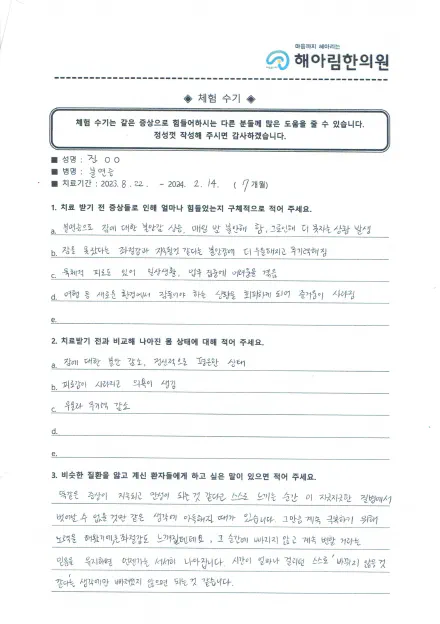 마음까지 헤아리는
해아림한의원
◈ 체험 수기 ◈
체험 수기는 같은 증상으로 힘들어하시는 다른 분들께 많은 도움을 줄 수 있습니다.
정성껏 작성해 주시면 감사하겠습니다.
■ 성명 : 진 OO
■ 병명 : 불면증
■ 치료기간 : 2023. 8. 22. - 2024. 2. 14. ( 7 개월)
1. 치료 받기 전 증상들로 인해 얼마나 힘들었는지 구체적으로 적어 주세요.
a. 불면증으로 잠에 대한 불안감 심함, 매일 밤 불안해 함, 그로인해 더 못자는 상황 발생
b. 잠을 못잤다는 좌절감과 지속될것 같다는 불안감에 더 우울해지고 무기력해짐
c. 육체적 피로도 있어 일상생활, 업무 집중에 어려움을 겪음
d. 여행 등 새로운 환경에서 잠들어야 하는 상황을 회피하게 되어 즐거움이 사라짐
e.
2. 치료받기 전과 비교해 나아진 몸 상태에 대해 적어 주세요.
a. 잠에 대한 불안 감소, 정신적으로 평온한 상태
b. 피로감이 사라지고 의욕이 생김
c. 우울과 무기력 감소
d.
e.
3. 비슷한 질환을 앓고 계신 환자들에게 하고 싶은 말이 있으면 적어 주세요.
똑같은 증상이 지속되고 만성이 되는 것 같다고 스스로 느끼는 순간 이 지긋지긋한 질병에서
벗어날 수 없을 것만 같은 생각에 아득해질 때가 있습니다. 그만큼 계속 극복하기 위해
노력을 해왔기에 좌절감도 느껴질텐데요, 그 순간에 빠지지 않고 계속 변할 거라는
믿음을 유지하면 언젠가는 서서히 나아집니다. 시간이 얼마나 걸리던 스스로 '바뀌지 않을 것
같다'는 생각에만 빠져있지 않으면 되는 것 같습니다.